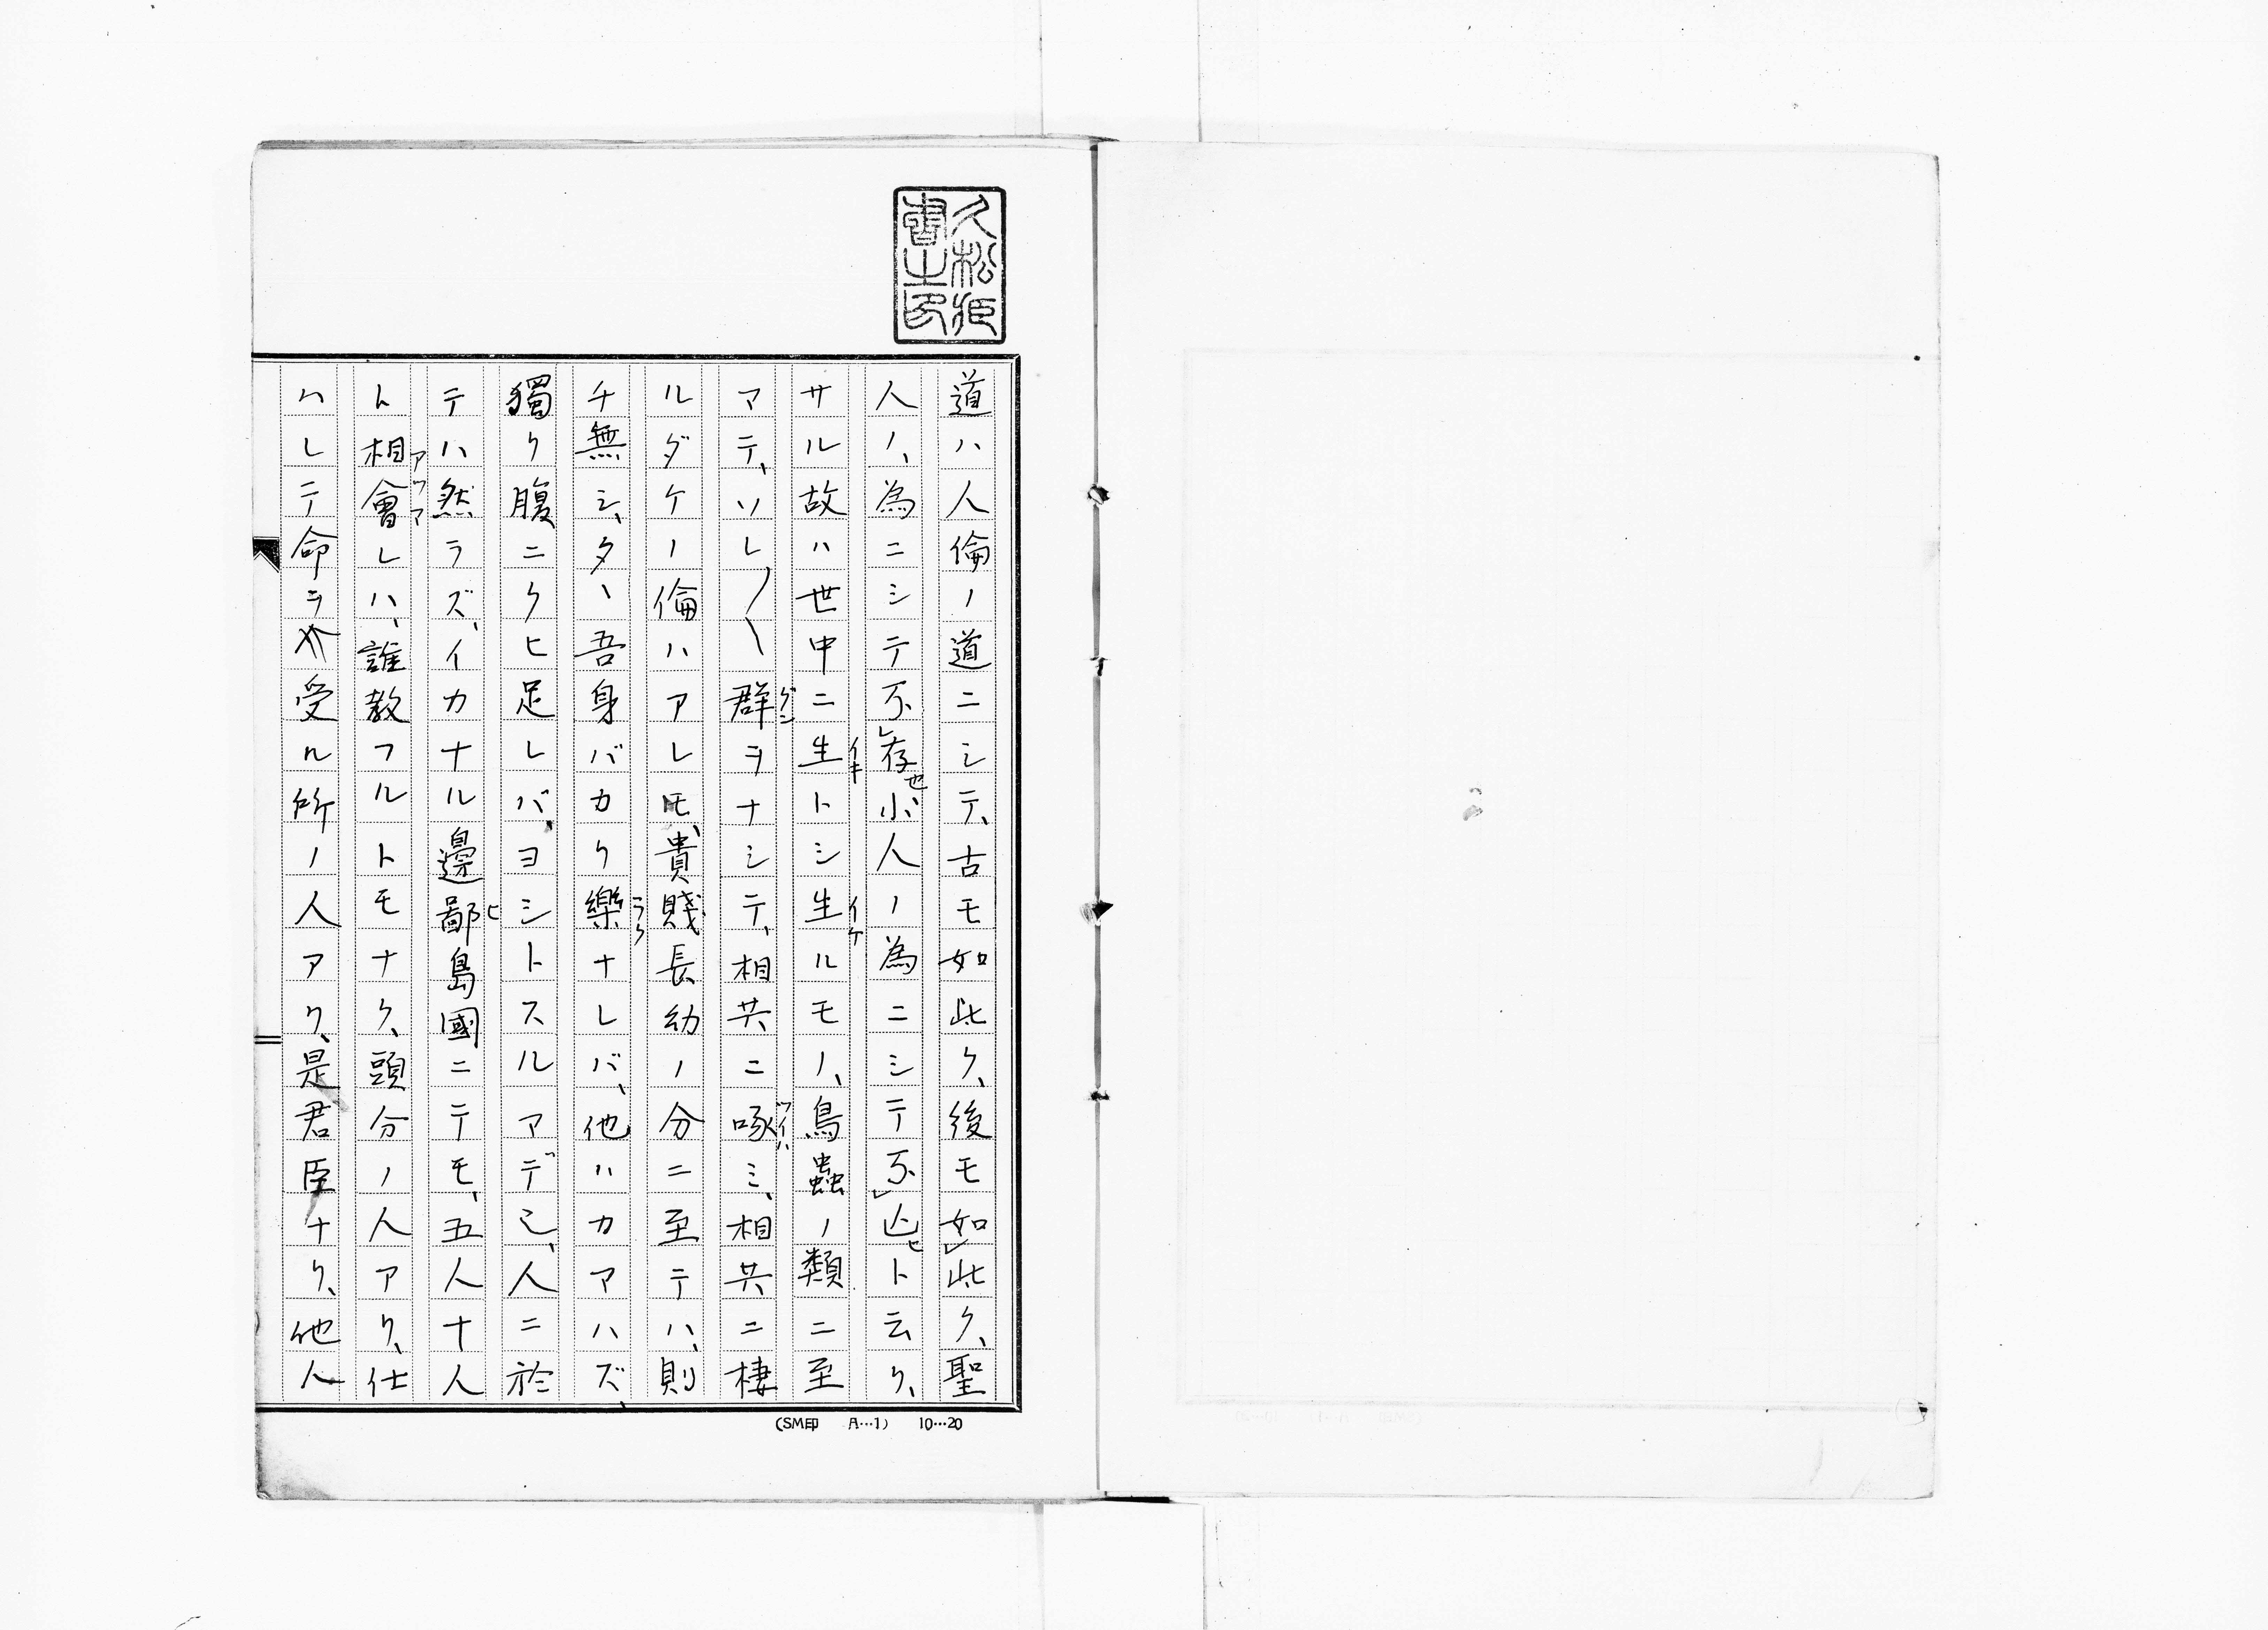 道ハ人倫ノ道ニシテ、古モ如此ク、後モ如レ此ク、聖
人ノ、為ニシテ不レ存也小人ノ為ニシテ不レ亾ヒト云リ、
サル故ハ世中ニ生トシ生ルモノ、鳥蟲ノ類ニ至
マテ、ソレ〳〵群ヲナシテ、相共ニ啄ミ、相共ニ棲
ルダケノ倫ハアレ𪜈、貴賤長幼ノ分ニ至テハ、則
チ無シ、タヽ吾身バカリ樂ナレバ、他ハカマハズ、
獨リ腹ニクヒ足レバ、ヨシトスルマデニ、人ニ於
テハ然ラズ、イカナル邊鄙島國ニテモ、五人十人
ト相會レハ、誰教フルトモナク、頭分ノ人アリ、仕
ハレテ命ヲ受ル所ノ人アリ、是君臣ナリ、他人
久松姫
書之印
(SM印 A…1) 10…20